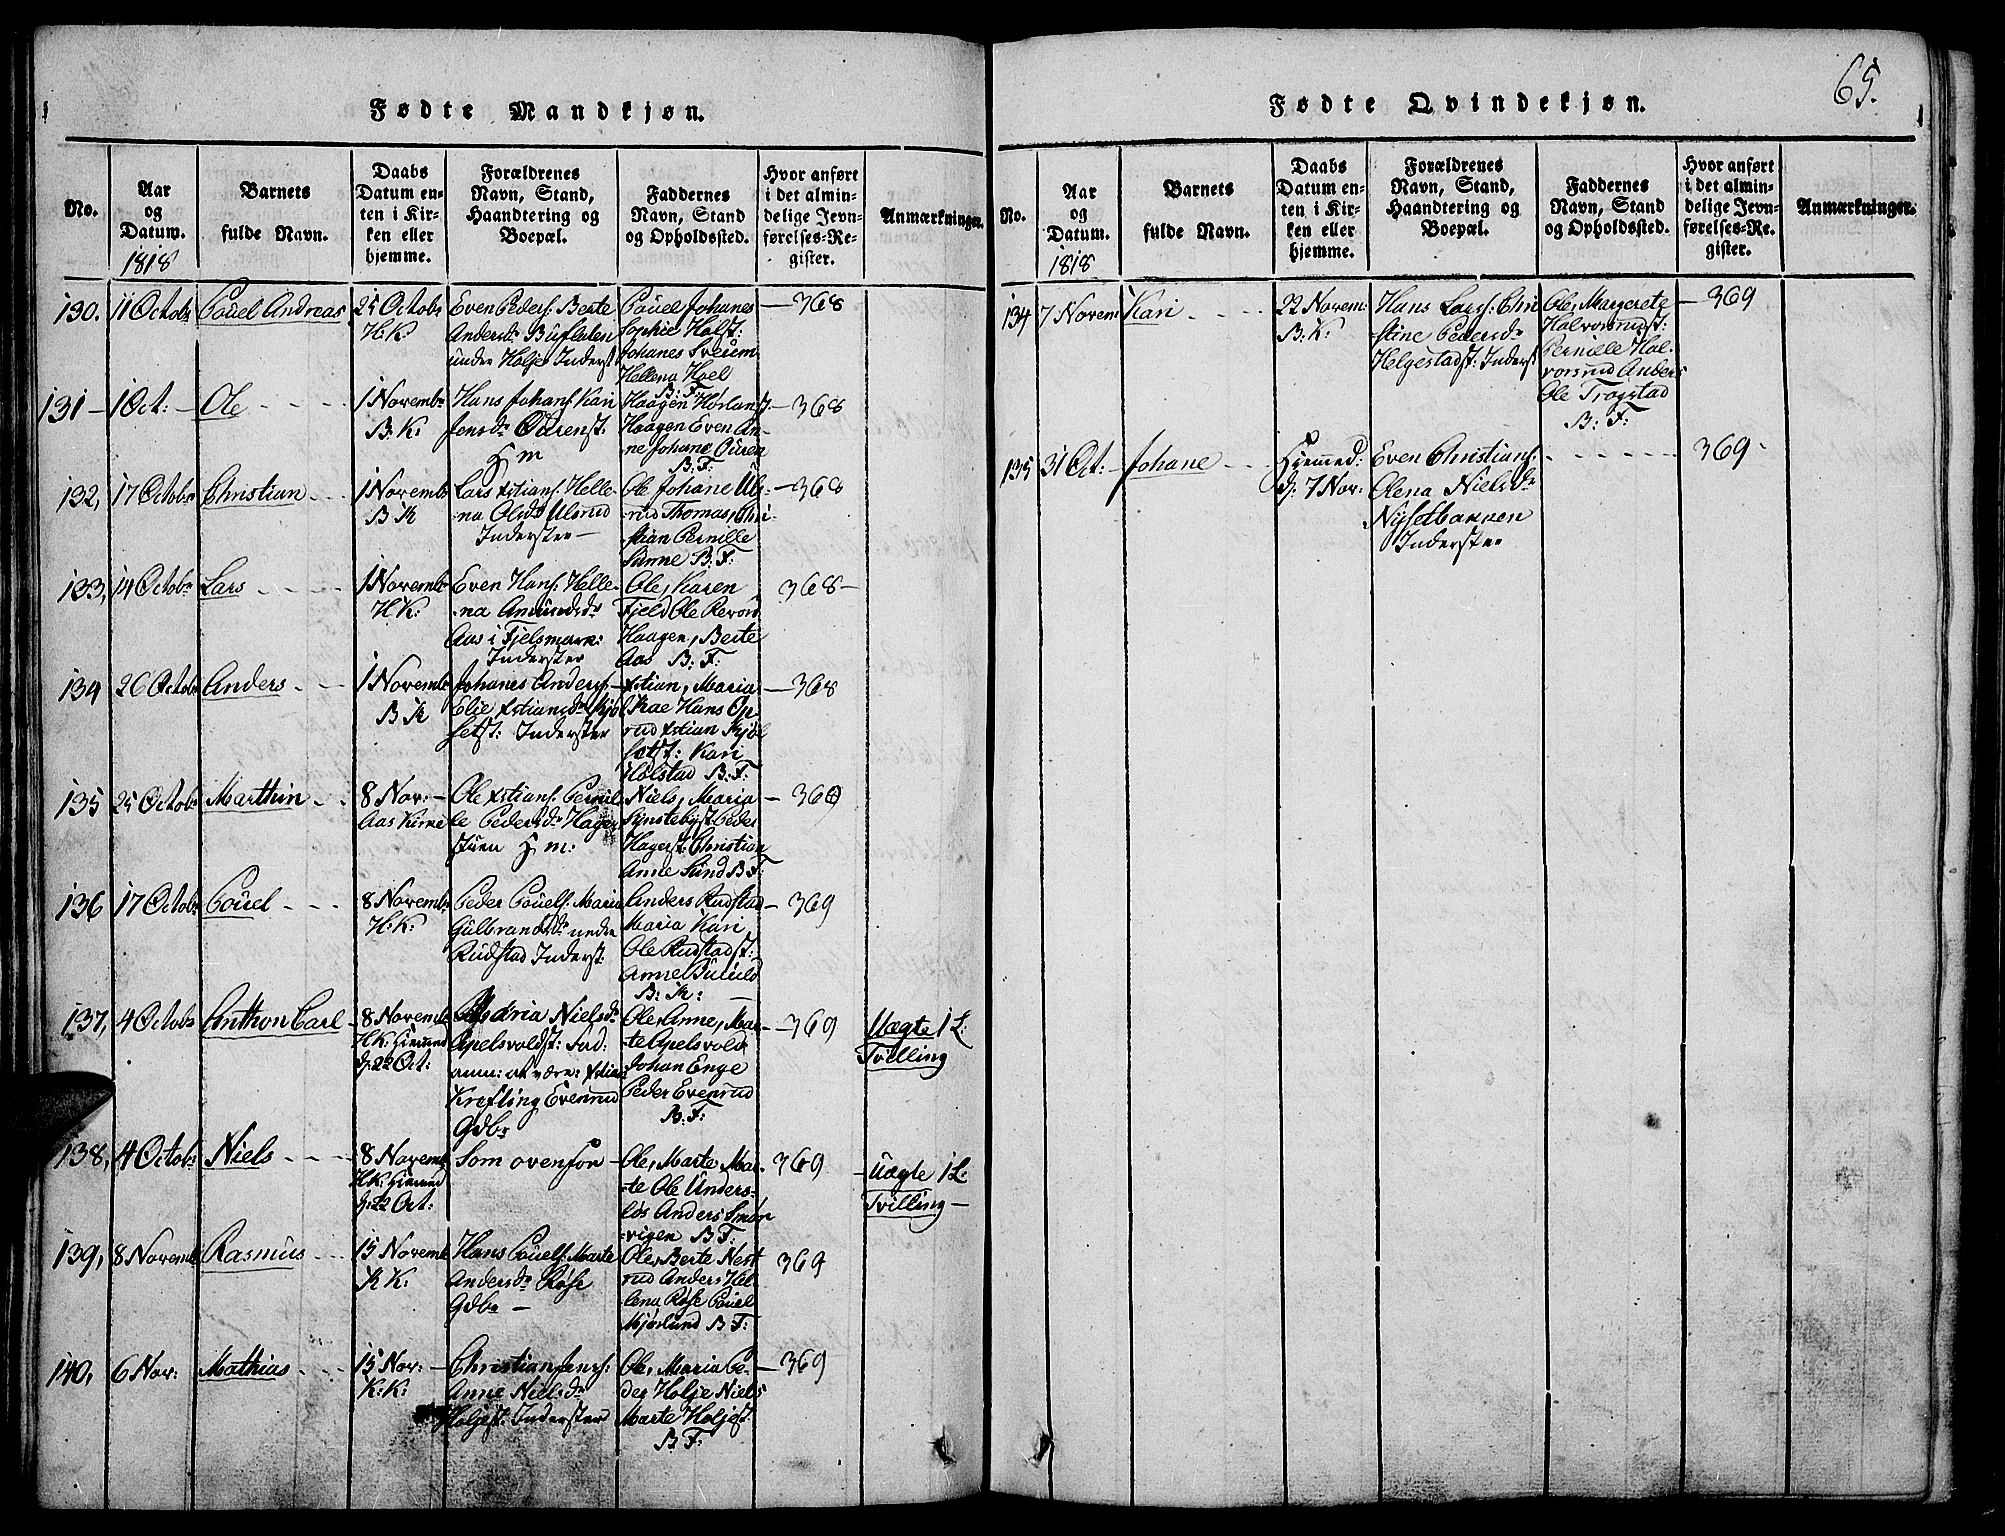 65.
Fødte Mandkjøn.
No.
Aar
og
Datum.
1818
Barnets
fulde Navn.
Daabs
Datum en-
ten i Kir-
ken eller
hjemme.
Forældrenes
Navn, Stand,
Haandtering og
Boepæl.
Faddernes
Navn, Stand
og Opholdssted.
Hvor anført
i det almin-
delige Jevn-
førelses-Re-
gister.
Anmærkninger.
130.
11 Octobr
Pouel Andreas
25 Octobr
H.K
Even Peders: Berte
Andersdr
under Holje Inderst
Pouel Johanes
Sophie Holst:
Johanes Sveum
Hellena Hoel
B: F:
368
131
1 Oct:
Ole
1 Novembr
B: K:
Hans Johans: Kari
Jensdr Ourenst.
H m
Haagen Hørlandst.
Haagen Even An-
ne Johane Ouren
B: F:
368
132,
17 Octobr
Christian
1 Novemb
B K
Lars Xstians: Helle-
na Olsdr Ulsrud
Inderster
Ole Johane Uls-
rud Thomas, Chri-
stian Pernille
Sünne B: F:
368
133,
14 Octobr
Lars
1 Novembr
H K:
Even Hans: Helle-
na Amundsdr
Aas i Fjelsmark:
Inderster
Ole, Karen
Fjeld Ole
Haagen, Berte
Aas B: F:
368
134
26 Octobr
Anders
1 Novemb
B K
Johanes Anders:
Elie Xstiansdr Kjøl
setst: Inderster
Xstian, Maria
Skae Hans Op-
rud Xstian Kjøl
setst: Kari
Holstad B: F:
368
135
25 Octobr
Marthin
8 Nov:
Aas Kirke
Ole Xstians: Pernil-
le Pedersdr Hager
stuen H m:
Niels, Maria
Sünstebyst: Peder
Hagerst: Christian
Anne Sünd B F:
368
136
17 Octobr
Pouel
8 Novembr
H: K:
Peder Pouels: Maria
Gulbrandsdr nedre
Rudstad Inderst.
Anders Rudstad
Maria Kari,
Ole Rudstadst:
Anne
B: K:
369
137,
4 Octobr
Anthon Carl
8 Novemb
H K: Hiemed
d: 22 Oct:
Andria Nielsdr
Apelsvoldst: Fad:
ann: at være: Xstian
Krefting Evenrud
Gdbr
Ole, Anne, Mar-
te Apelsvold
Johan Enge
Peder Evenrud
B: F:
369
Uægte 1 L:
Tvilling
138,
4 Octobr
Niels
8 Novemb
H K: Hiemed
d: 22 Oct:
Som ovenfor
Ole, Marte Mar-
te Ole Unders-
los Anders Smør
vigen B F:
369
Uægte 1 L:
Tvilling
139,
8 Novemb
Rasmus
15 Novemb
K K:
Hans Pouels: Marte
Andersdr Røise
Gdbr
Ole, Berte Nest
rud Anders Hel-
lena Røise Pouel
Mjørlund B F:
369
140,
6 Nov:
Mathias
15 Nov:
K: K:
Christian Jens:
Anne Nielsdr
Holjest: Inderster
Ole, Maria Pe-
der Holje Niels
Marte Holjest:
B F:
369
Fødte Qvindekjøn.
No.
Aar
og
Datum.
1818
Barnets
fulde Navn.
Daabs
Datum en-
ten i Kir-
ken eller
hjemme.
Forældrenes
Navn, Stand,
Haandtering og
Boepæl.
Faddernes
Navn, Stand
og Opholdssted.
Hvor anført
i det almin-
delige Jevn-
førelses-Re-
gister.
Anmærkninger.
134
7 Novem:
Kari
22 Novem:
B: K:
Hans Lars: Chri
stine Pedersdr
Helgestadst: Inderst
Ole, Margerete
Halvorsrudst:
Pernille Hal-
vorsrud Anders
Ole Trogstad
B: F:
369
135
31 Oct:
Johane
Hiemed:
d: 7 Nov:
Even Christians:
Olena Nielsdr
Nysetbakken
Inderster
369